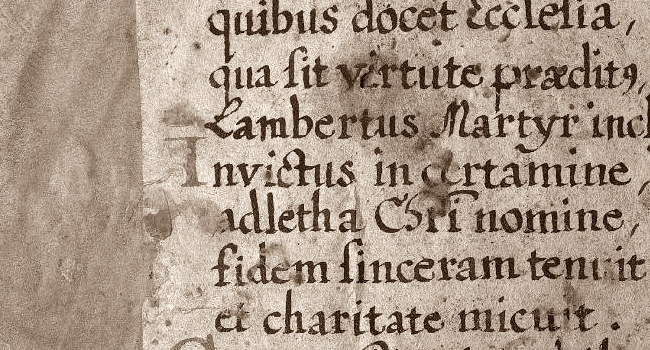 quibus docet Ecclesia,
qua sit virtute præditꝰ,
Lambertus Martyr incl
Invictus in certamine,
adletha Chri nomine,
fidem sinceram tenuit
et charitate micuit.